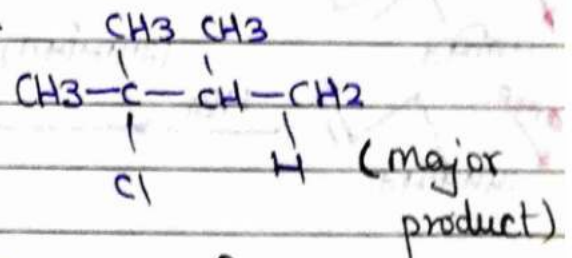 CH3 CH3
CH3-C-CH-CH2
Cl
H (major
product)